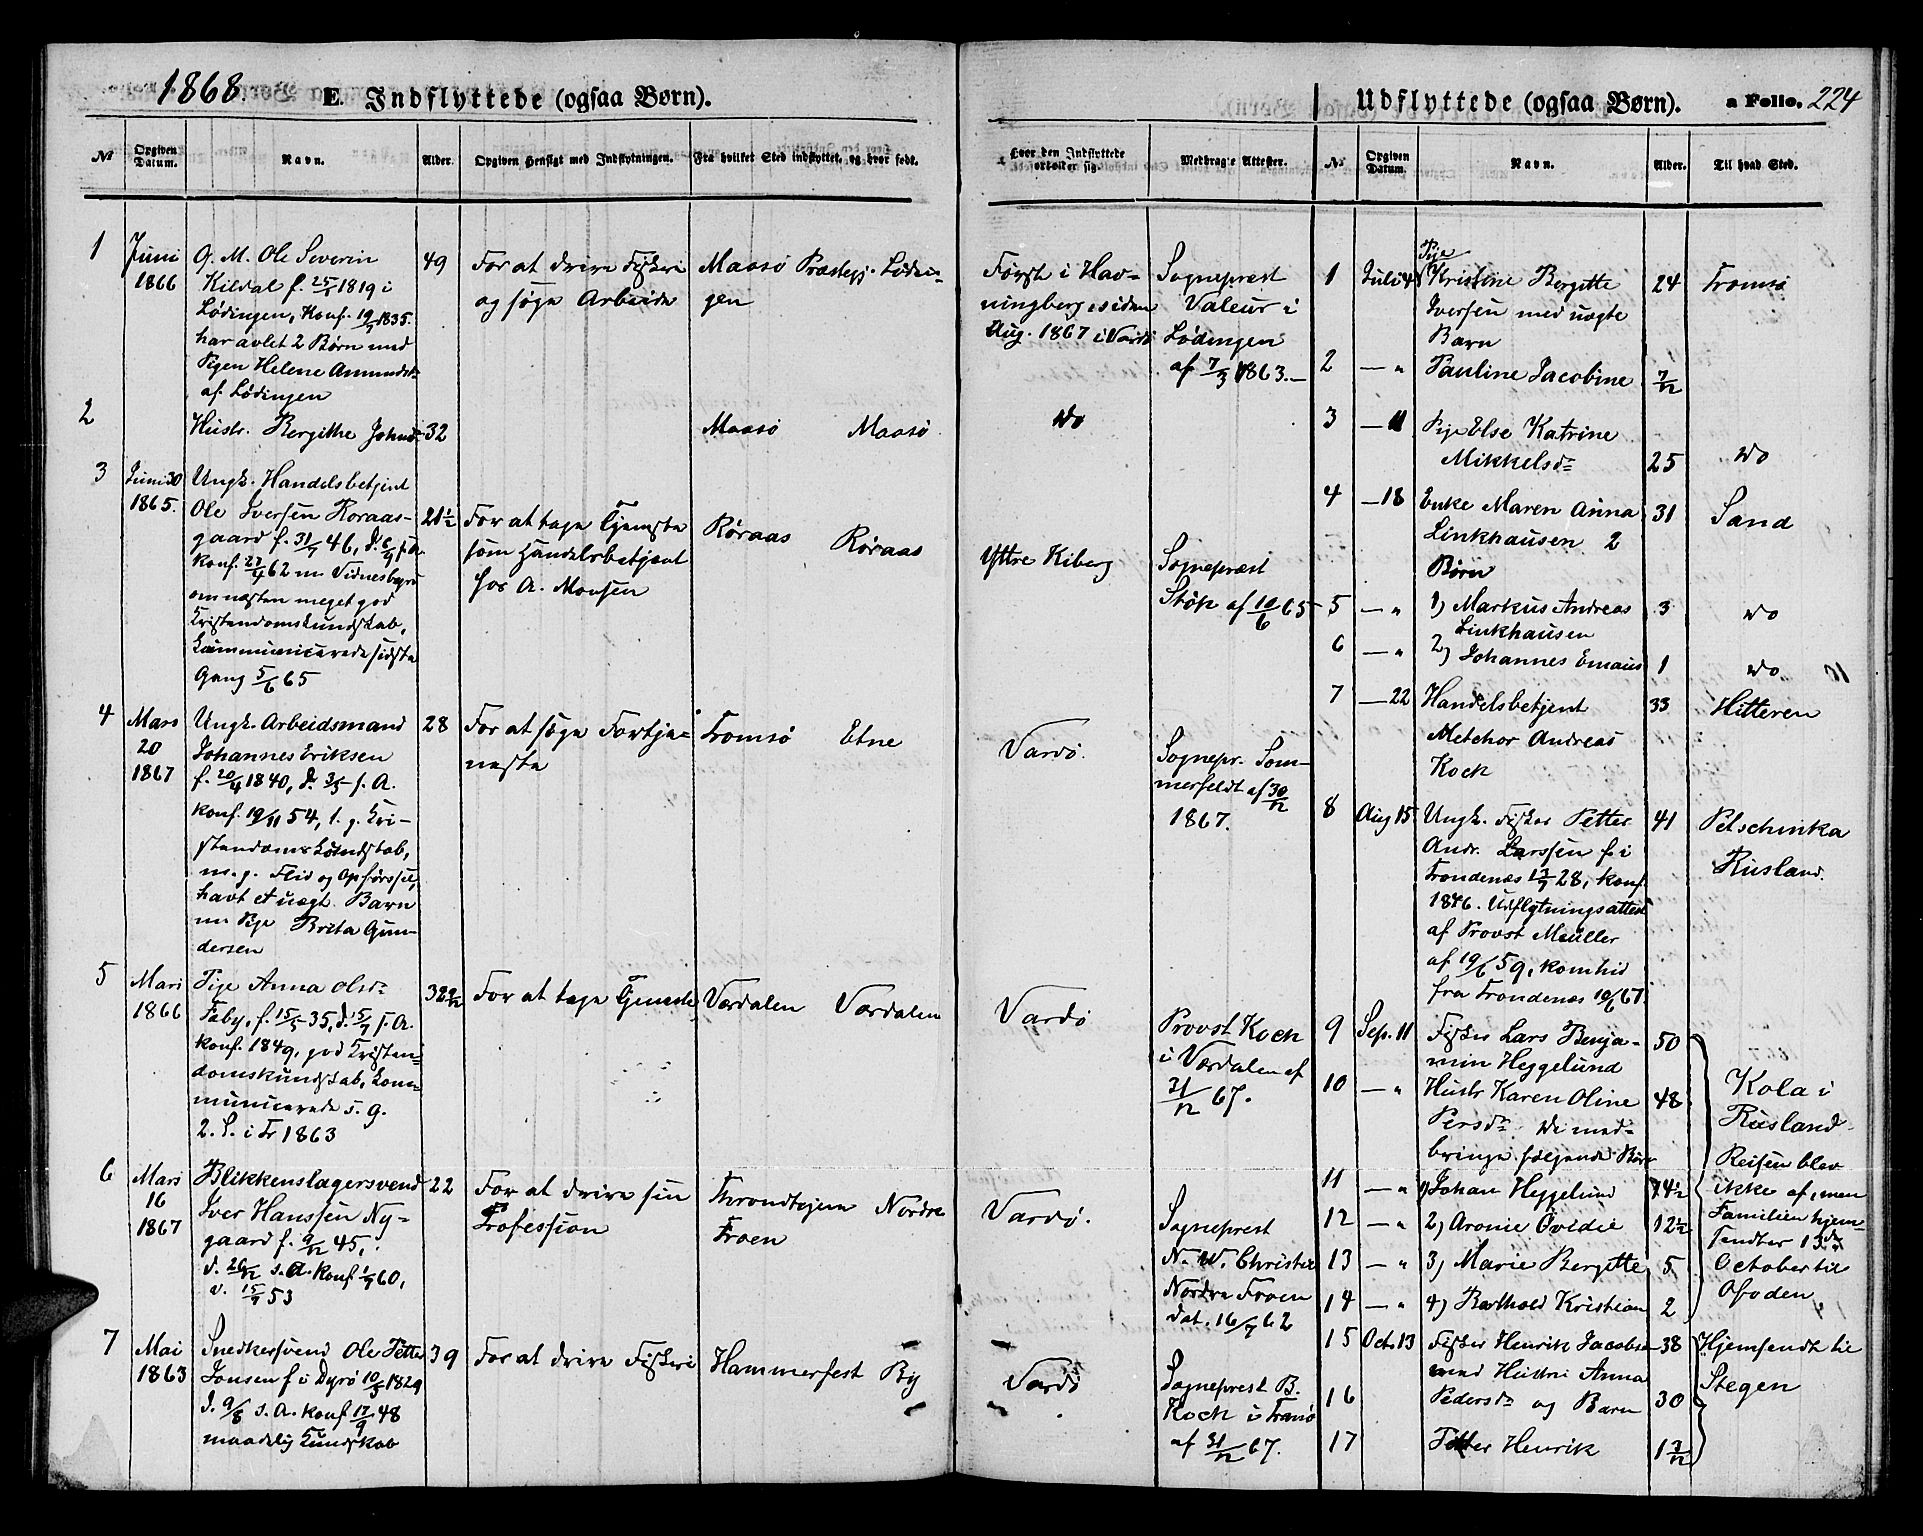 1868.
E. Indflyttede (ogsaa Børn).
№
Opgiven Datum.
Navn.
Alder.
Opgiven Hensigt med Indflytningen.
Fra hvilket Sted indflyttet, og hvor født.
1
Juni
1866
G. M. Ole Severin
Kildal f. 25/1 1819 i
Lødingen, Konf. 19/7 1835.
har avlet 2 Børn med
Pigen Helene Amundsdr
af Lødingen
49
For at drive Fiskeri
og søge Arbeide
Maasø Præstegj. Lødin-
gen
2
Hustr. Bergithe Johnsd.
32
Maasø Maasø
3
Juni 30
1865.
Ungk. Handelsbetjent
Ole Iversen Koraas-
gaard f. 31/7 46, d. 6/9 s. A.
konf. 27/4 62 m Vidnesbyrd
om næsten meget god
Kristendomskundskab,
kommunicerede sidste
Gang 5/6 65
21 1/2
For at tage Tjeneste
som Handelsbetjent
hos A. Monsen
Røraas Røraas
4
Mars
20
1867
Ungk. Arbeidsmand
Johannes Eriksen
f. 20/4 1840, d. 3/5 s. A.
konf. 19/11 54, t. g. Kri-
stendoms Kundskab,
m. g. Flid og Opførsel,
havt et uægt. Barn
m Pige Brita Gun-
dersen
28
For at søge Fortje-
neste
Tromsø Etne
5
Mars
1866
Pige Anna Olsdr
Faby, f. 15/5 35, d. 15/7 s. A.
konf. 1849, god Kristen-
domskundskab, kom-
municerede s. G.
2. S. i Fr 1863
32 9/12
For at tage Tjeneste
Værdalen Værdalen
6
Mars
16
1867
Blikkenslagersvend
Iver Hanssen Ny-
gaard f. 9/12 45,
d. 26/12 s. A. konf 1/7 60,
v. 15/9 53
22
For at drive sin
Profession
Throndhjem Nordre
Froen
7
Mai
1863
Snedkersvend Ole Petter
Jonsen f i Dyrø 10/3 1829
d. 9/8 s. A. konf 17/9 48
maadelig Kundskab
39
For at drive Fiskeri
Hammerfest By
Udflyttede (ogsaa Børn).
a Folio. 224
Hvor den Indflyttede opholder sig.
Medbragte Attester.
№
Opgiven Datum.
Navn.
Alder.
Til hvad Sted.
Først i Hav-
ningberg, siden
Aug. 1867 i Vardø
Sogneprest
Valeur i
Lødingen
af 7/3 1863.—
Do
Yttre Kiberg
Sognepræst
Støp af 10/6 65
Vardø.
Sognepr. Som-
merfeldt af 30/12
1867.
Vardø
Provst Koch
i Værdalen af
31/12 67.
Vardø.
Sogneprest
N. W. Christie
Nordre Froen
dat. 16/7 62
Vardø
Sogneprest B.
Koch i Tranø
af 31/12 67.
1 Juli 4 Pige Kristine Bergitte 24 Tromsø
Iversen med uægte
Barn
2 — " Pauline Jacobine 7/12
3 — 11 Pige Else Katrine
Mikkelsdr 25 Do
4 — 18 Enke Maren Anna 31 Sand
Linkhausen 2
Børn
5 — " 1) Markus Andreas 3 Do
Linkhausen
6 — " 2) Johannes Emaus 1 Do
7 — 22 Handelsbetjent 33 Hitteren
Melchor Andreas
Kock
8 Aug 15 Ungk. Fisker Petter 41 Petschinka
Andr. Larssen f. i Rusland.
Trondenæs 17/7 28, konf.
1846. Udflytningsattest
af Provst Müller
af 19/6 59, kom hid
fra Trondenæs 10/6 67.
9 Sep. 11 Fisker Lars Benja- 50
min Heggelund
10 — " Hustr Karen Oline 48
Persdr. De med-
bringe følgende Børn
11 — " 1) Johan Heggelund 14 1/2
12 — " 2) Aronie Ovidie 12 1/2
13 — " 3) Marie Bergitte 5
14 — " 4) Barthold Kristian 2
Kola i
Rusland.
Reisen blev
ikke af, men
Familien hjem-
sendtes 13de
October til
Ofoden
15 Oct. 13 Fisker Henrik Jacobsen 38 Hjemsendt til
med Hustru Anna Stegen
16 Pedersdr og Barn 30
17 Petter Henrik 1 7/12